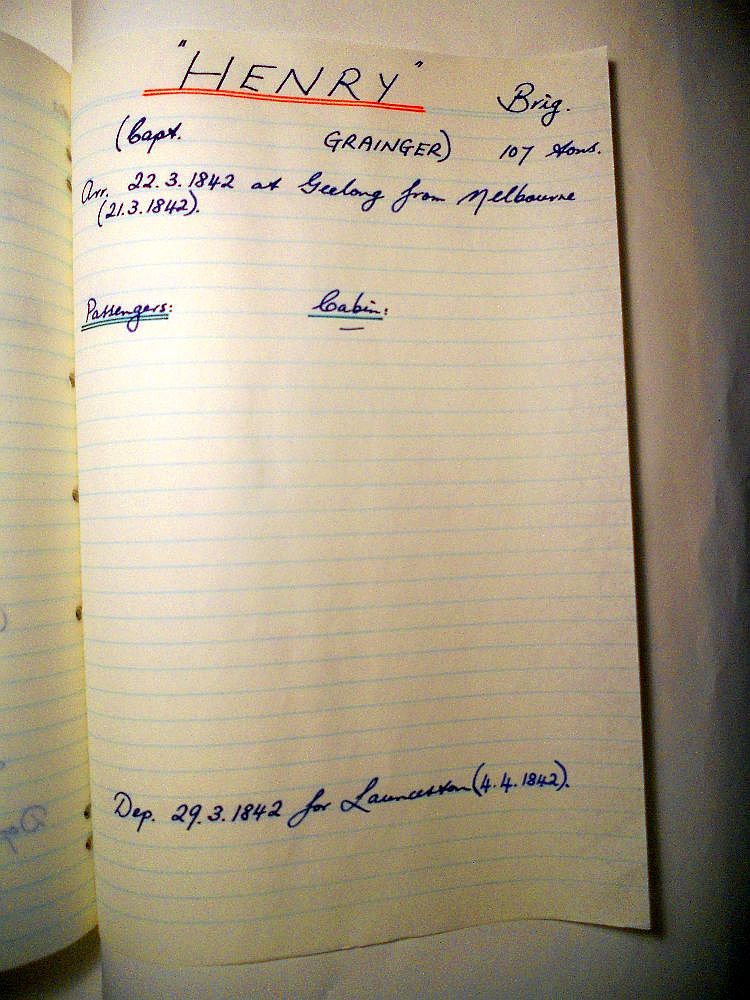 "HENRY" Brig.
(Capt. GRAINGER) 107 tons.
Arr. 22.3.1842 at Geelong from Melbourne
(21.3.1842).
Passengers: Cabin:
—
Dep. 29.3.1842 for Launceston (4.4.1842).